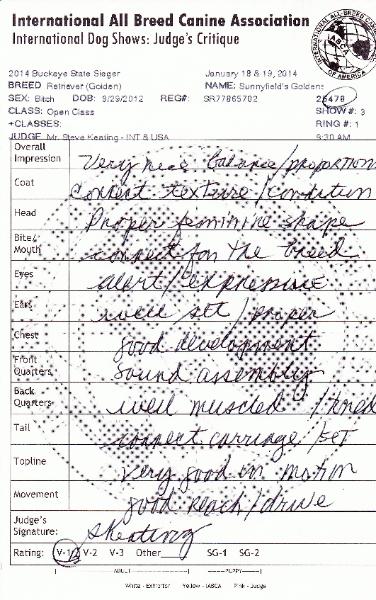 International All Breed Canine Association
International Dog Shows: Judge's Critique
INTERNATIONAL ALL BREED CANINE
IABCA
OF AMERICA
2014 Buckeye State Sieger January 18 & 19, 2014
BREED Retriever (Golden) NAME: Sunnyfield's Golden
SEX: Bitch DOB: 9/29/2012 REG#: SR77865702 26478
CLASS: Open Class SHOW#: 3
+CLASSES: RING #: 1
JUDGE Mr. Steve Keating - INT & USA 9:30 AM
Overall Impression Very nice balance/proportion
Coat Correct texture/condition
Head Proper feminine shape
Bite/ Mouth correct for the breed
Eyes alert/expressive
Ears well set/proper
Chest good development
Front Quarters sound assembly
Back Quarters well muscled /
Tail correct carriage/set
Topline very good in motion
Movement good reach/drive
Judge's Signature: S Keating
Rating: V-1 V-2 V-3 Other SG-1 SG-2
ADULT PUPPY
White - Exhibitor Yellow - IABCA Pink - Judge